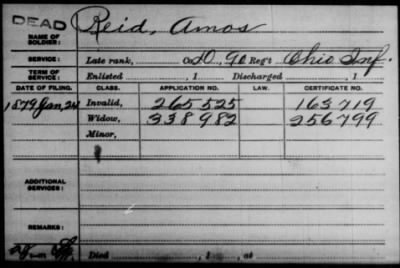 DEAD
NAME OF SOLDIER: Reid, Amos
SERVICE: Late rank, Co D, 90 Reg't Ohio Inf.
TERM OF SERVICE: Enlisted , 1 Discharged , 1
DATE OF FILING. CLASS. APPLICATION NO. LAW. CERTIFICATE NO.
1879 Jan, 24 Invalid, 265525 163719
Widow, 338982 256799
Minor,
ADDITIONAL SERVICES:
REMARKS:
Died , 1 , at